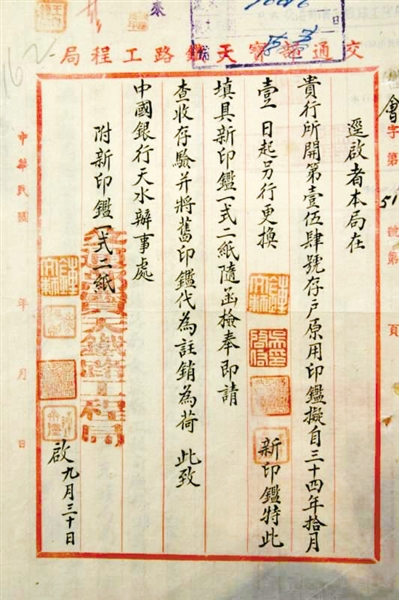 交通部寶天鐵路工程局
會字第51號第 頁
逕啟者本局在
貴行所開第壹伍肆號存戶原用印鑑擬自三十四年拾月
壹日起另行更換 新印鑑特此
填具新印鑑一式二紙隨函檢奉即請
查收存驗并將舊印鑑代為註銷為荷 此致
中國銀行天水辦事處
附新印鑑一式二紙
啟九月三十日
中華民國 年 月 日
162